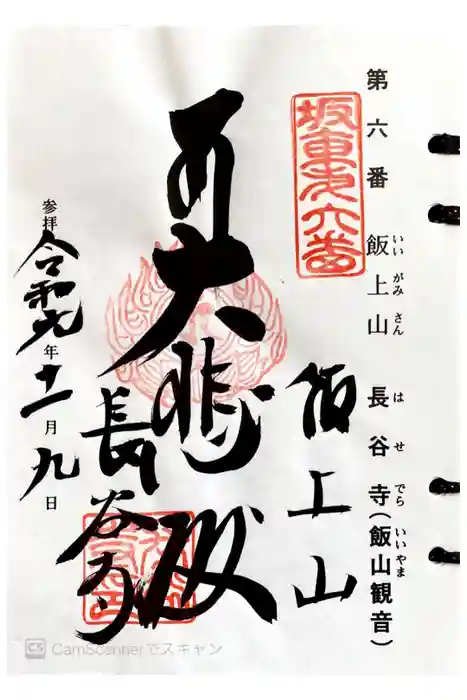 第六番 飯上山 長谷寺(飯山観音)
いいがみさん はせでら いいやま
坂東第六番
飯上山
大悲殿
長谷寺
参拝 令和元年十一月九日
CamScannerでスキャン